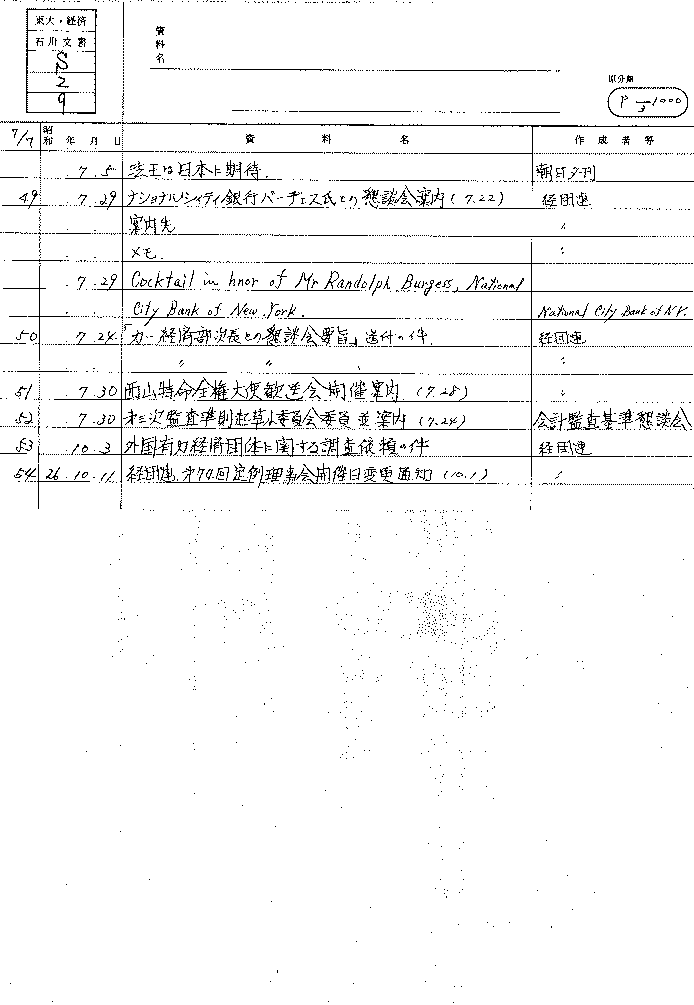 東大・経済
石川文書
S
2
9
資料名
原分類
P-3-1000
7/7 昭和 年 月 日 資料名 作成者等
7.5 は日本に期待. 朝日夕刊
49 7.29 ナショナルシィティ銀行バーヂェス氏との懇談会案内(7.22) 経団連
案内先 〃
メモ. 〃
7.29 Cocktail in hnor of Mr Randolph Burgess, National
City Bank of New York. National City Bank of N.Y.
50 7.24 「カー経済部次長との懇談会要旨」送付の件 経団連
〃 〃 〃
51 7.30 西山特命全権大使歓送会開催案内 (7.28) 〃
52 7.30 第三次監査準則起草小委員会委員並案内 (7.24) 会計監査基準懇談会
53 10.3 外国有力経済団体に関する調査依頼の件 経団連
54 26.10.11 経団連.第74回定例理事会開催日変更通知 (10.1) 〃